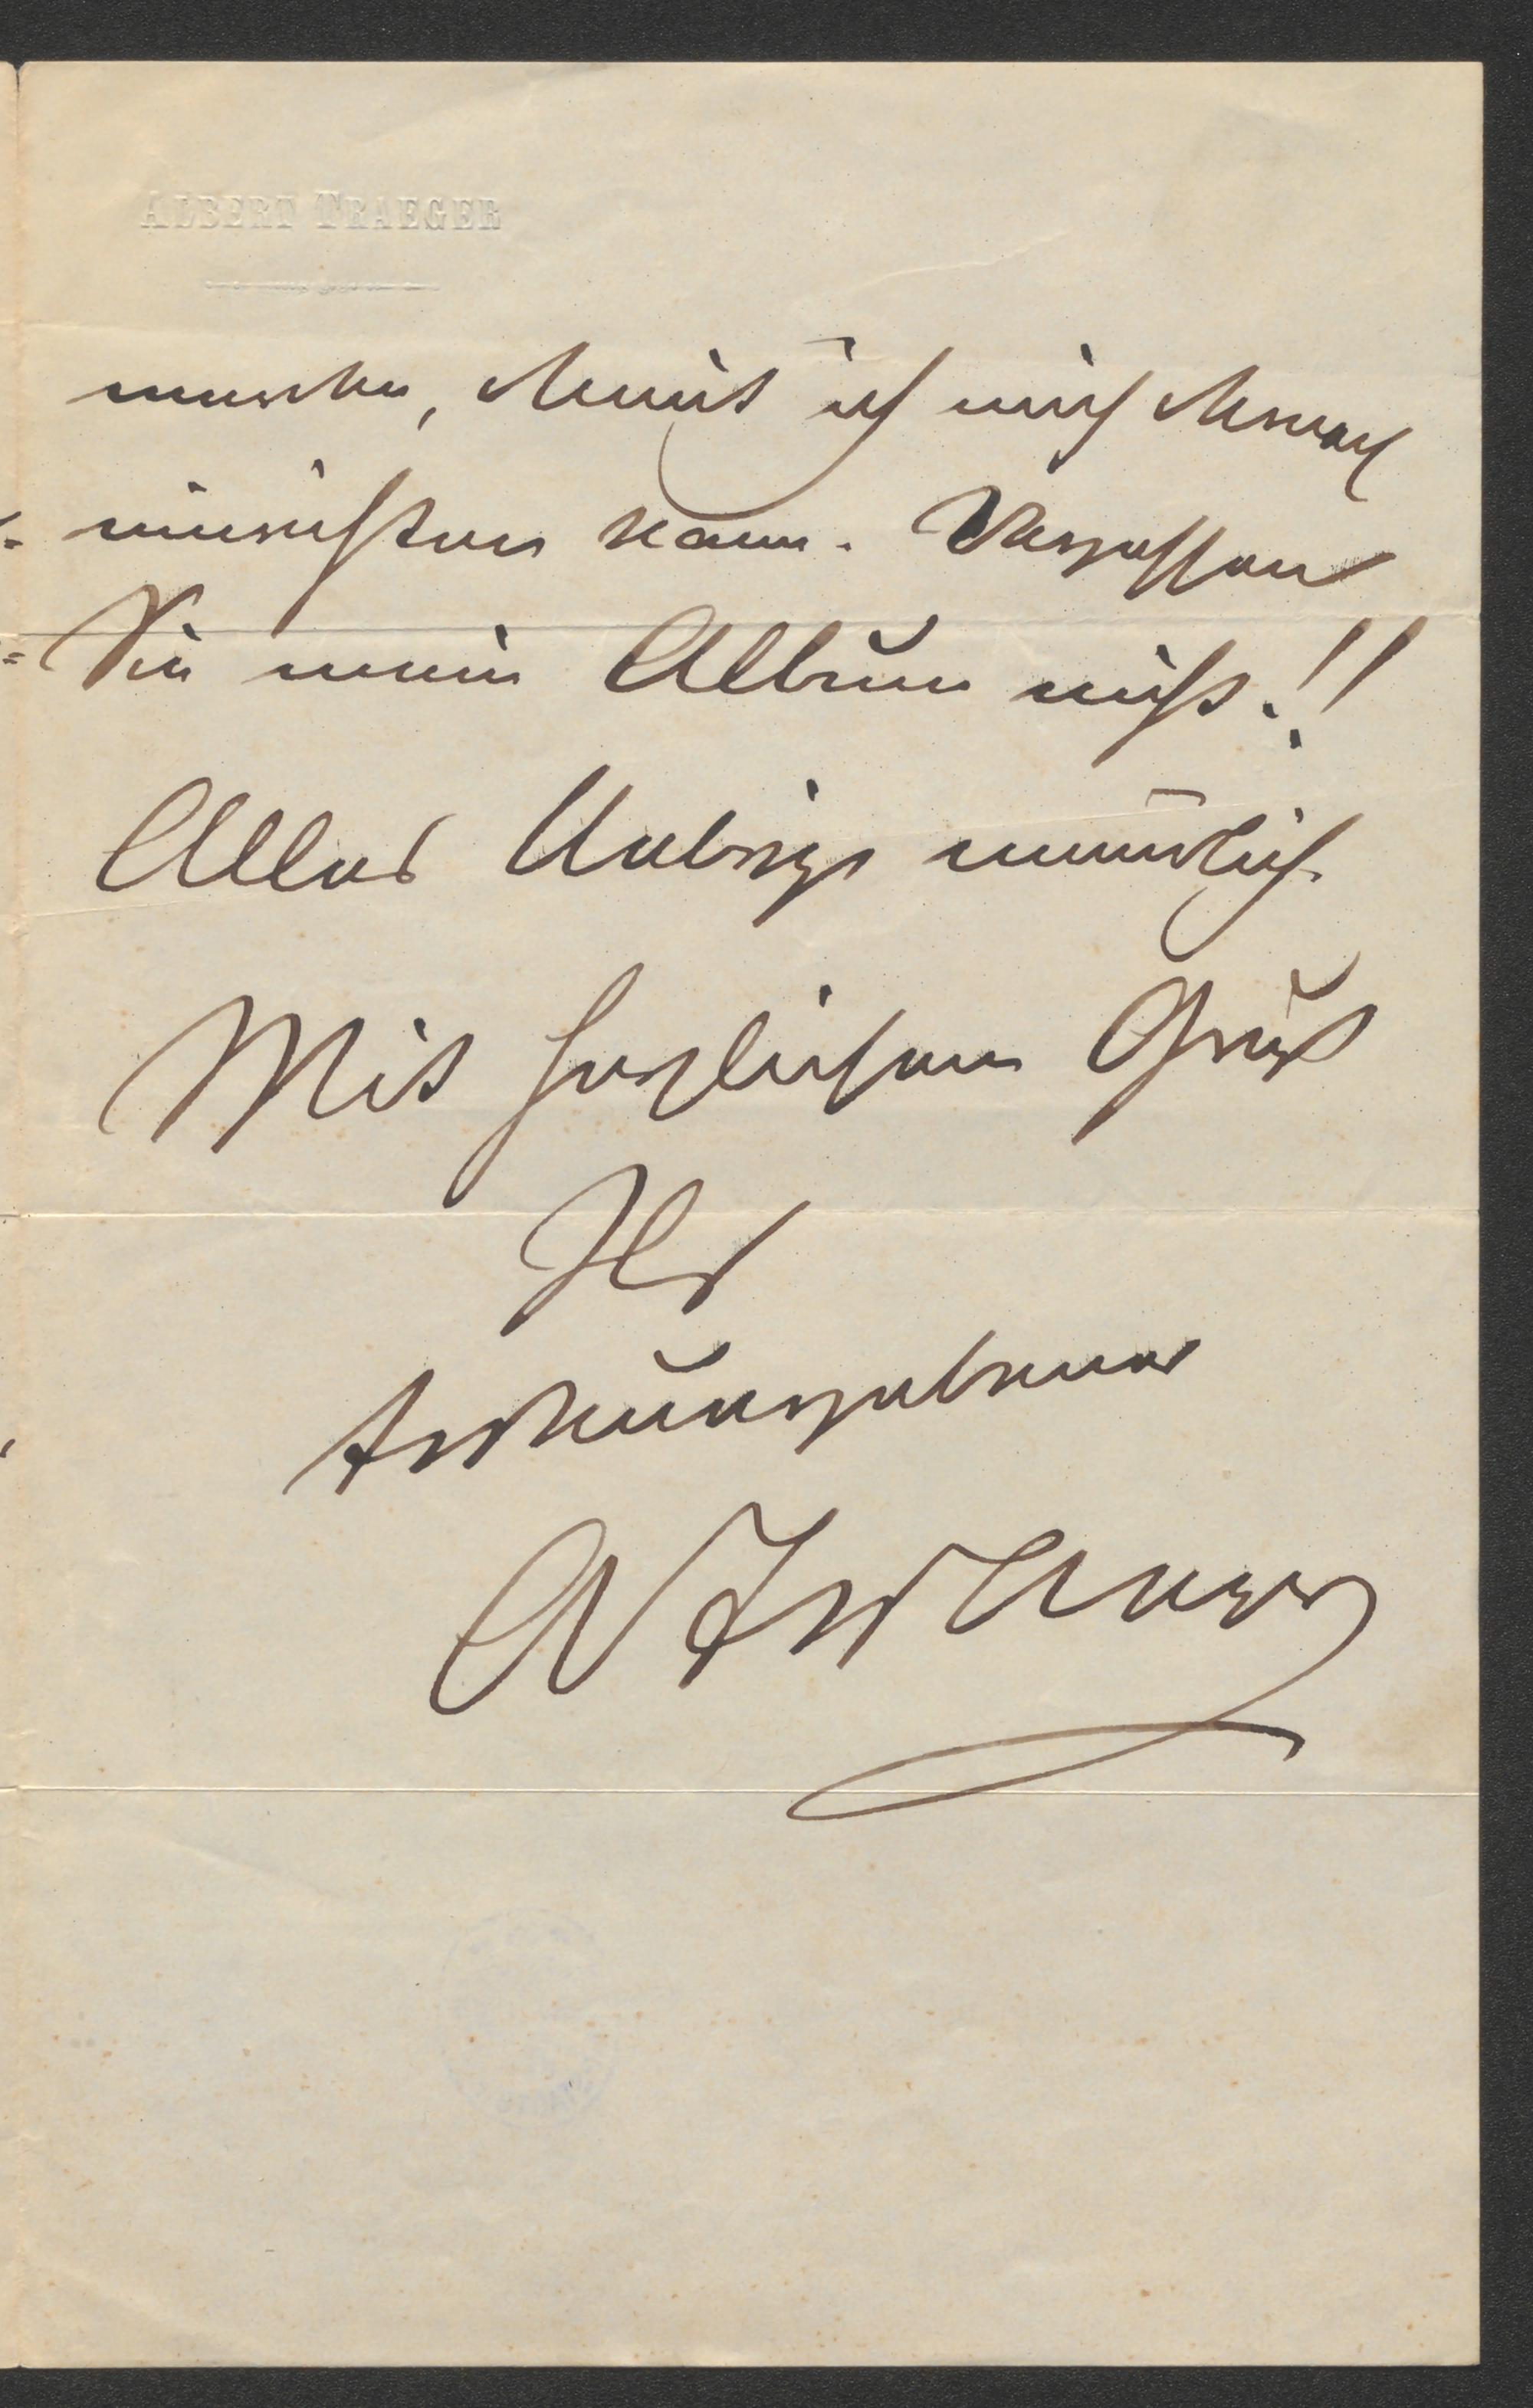 ALBERT TRAEGER
werden, damit ich mich danach
einrichten kann. Vergessen
Sie mein Album nicht!!
Alles Uebrige mündlich.
Mit herzlichem Gruß
Ihr
treuergebener
ATraeger